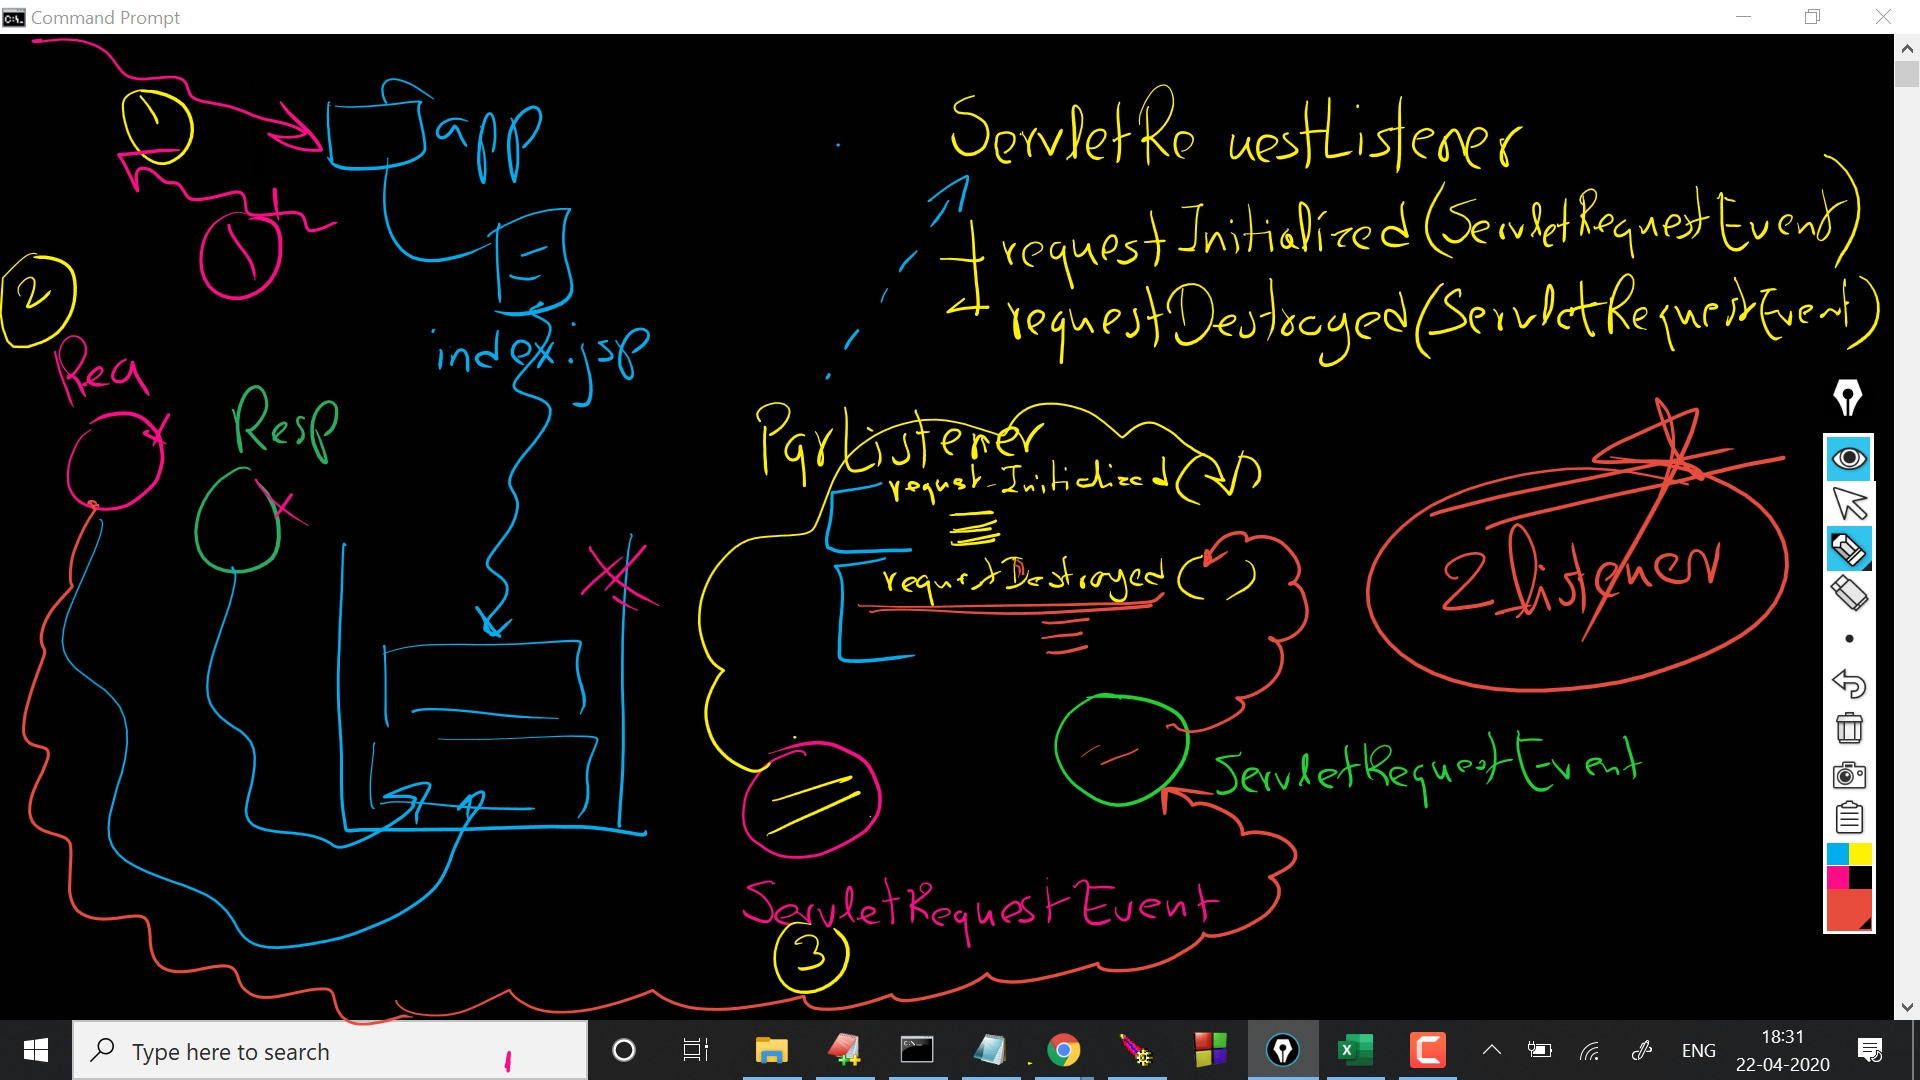 Command Prompt
1
app
ServletRe uestListener
requestInitialized(ServletRequestEvent)
requestDestroyed(ServletRequestEvent)
1
2
index.jsp
Req
Resp
PqrListener
request-Initialized( )
requestDestroyed( )
2 listener
ServletRequestEvent
ServletRequestEvent
3
Type here to search
ENG
18:31
22-04-2020